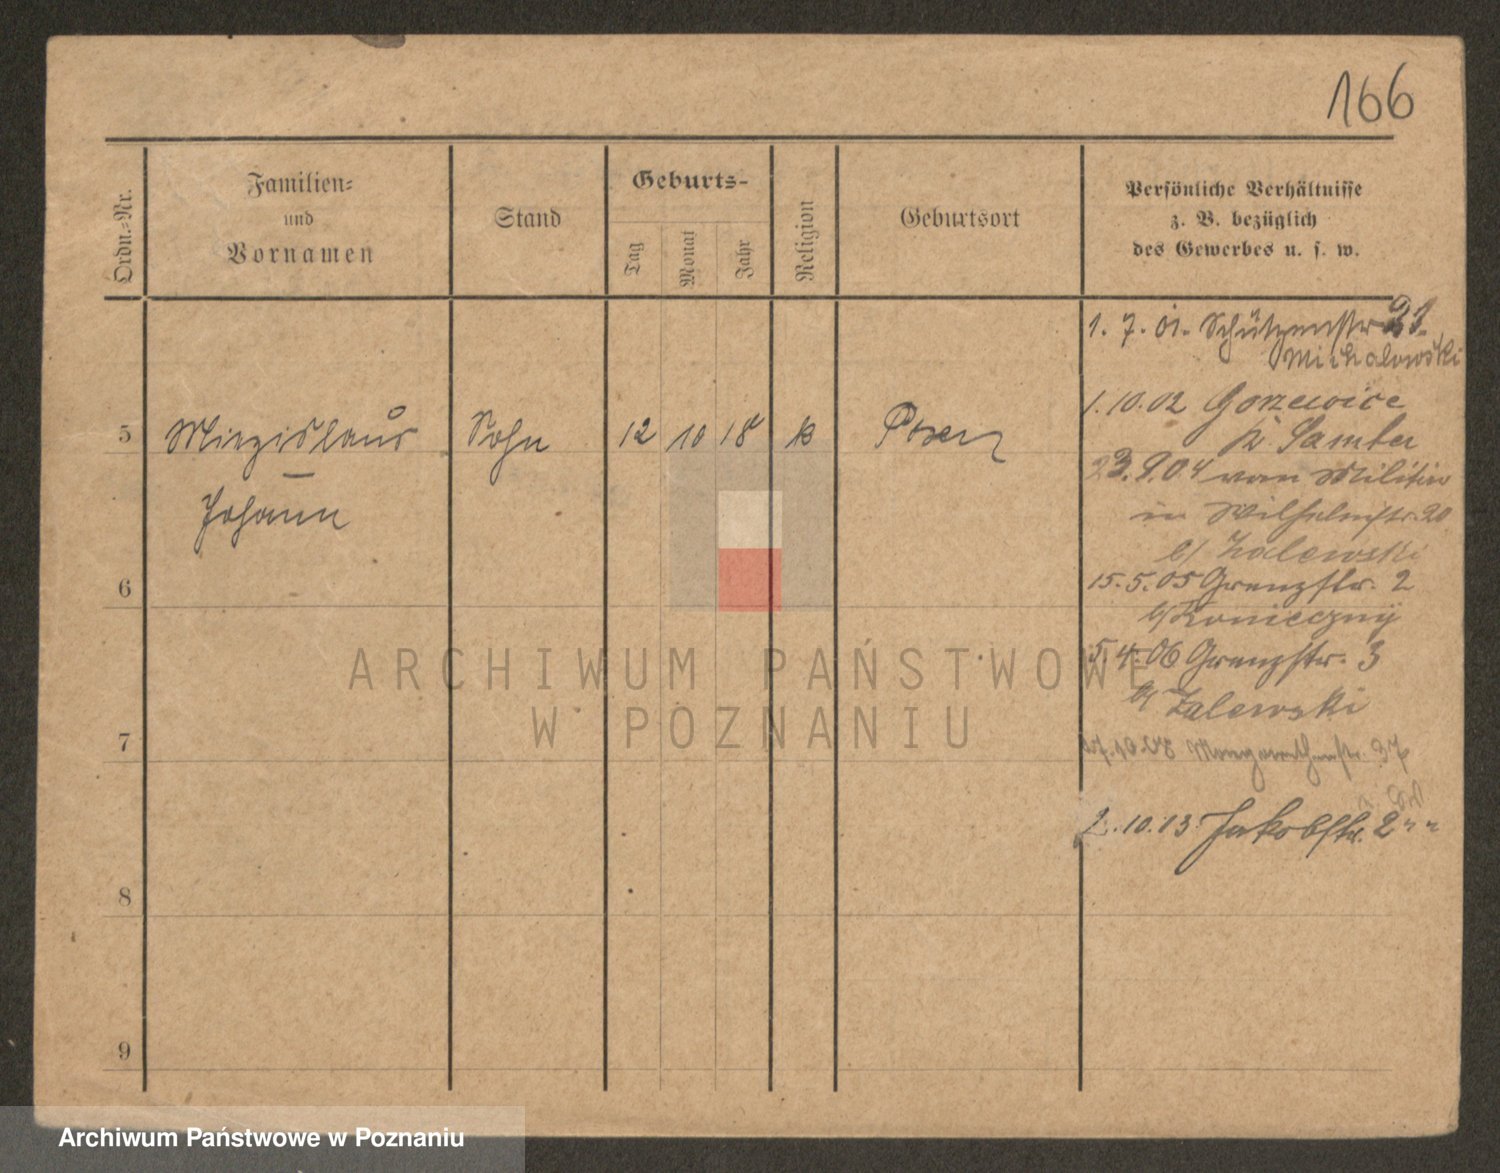 166
Ordn.-Nr.
Familien-
und
Vornamen
Stand
Geburts-
Tag
Monat
Jahr
Religion
Geburtsort
Persönliche Verhältnisse
z. B. bezüglich
des Gewerbes u. s. w.
1. 7. 01. Schützenstr 21.
Michalowski
1. 10. 02 Gorzewice
K. Samter
5 Miezislaus Sohn 12 10 18 k Posen
23. 9. 04 vom Militär
in Wilhelmstr. 20
b/ Zalewski
Johann
6
15. 5. 05 Grenzstr. 2
b/ Konieczny
5. 4. 06 Grenzstr. 3
b/ Zalewski
7
Margarethenstr. 37
2. 10. 13 Jakobstr. 2
8
9
ARCHIWUM PAŃSTWOWE
W POZNANIU
Archiwum Państwowe w Poznaniu